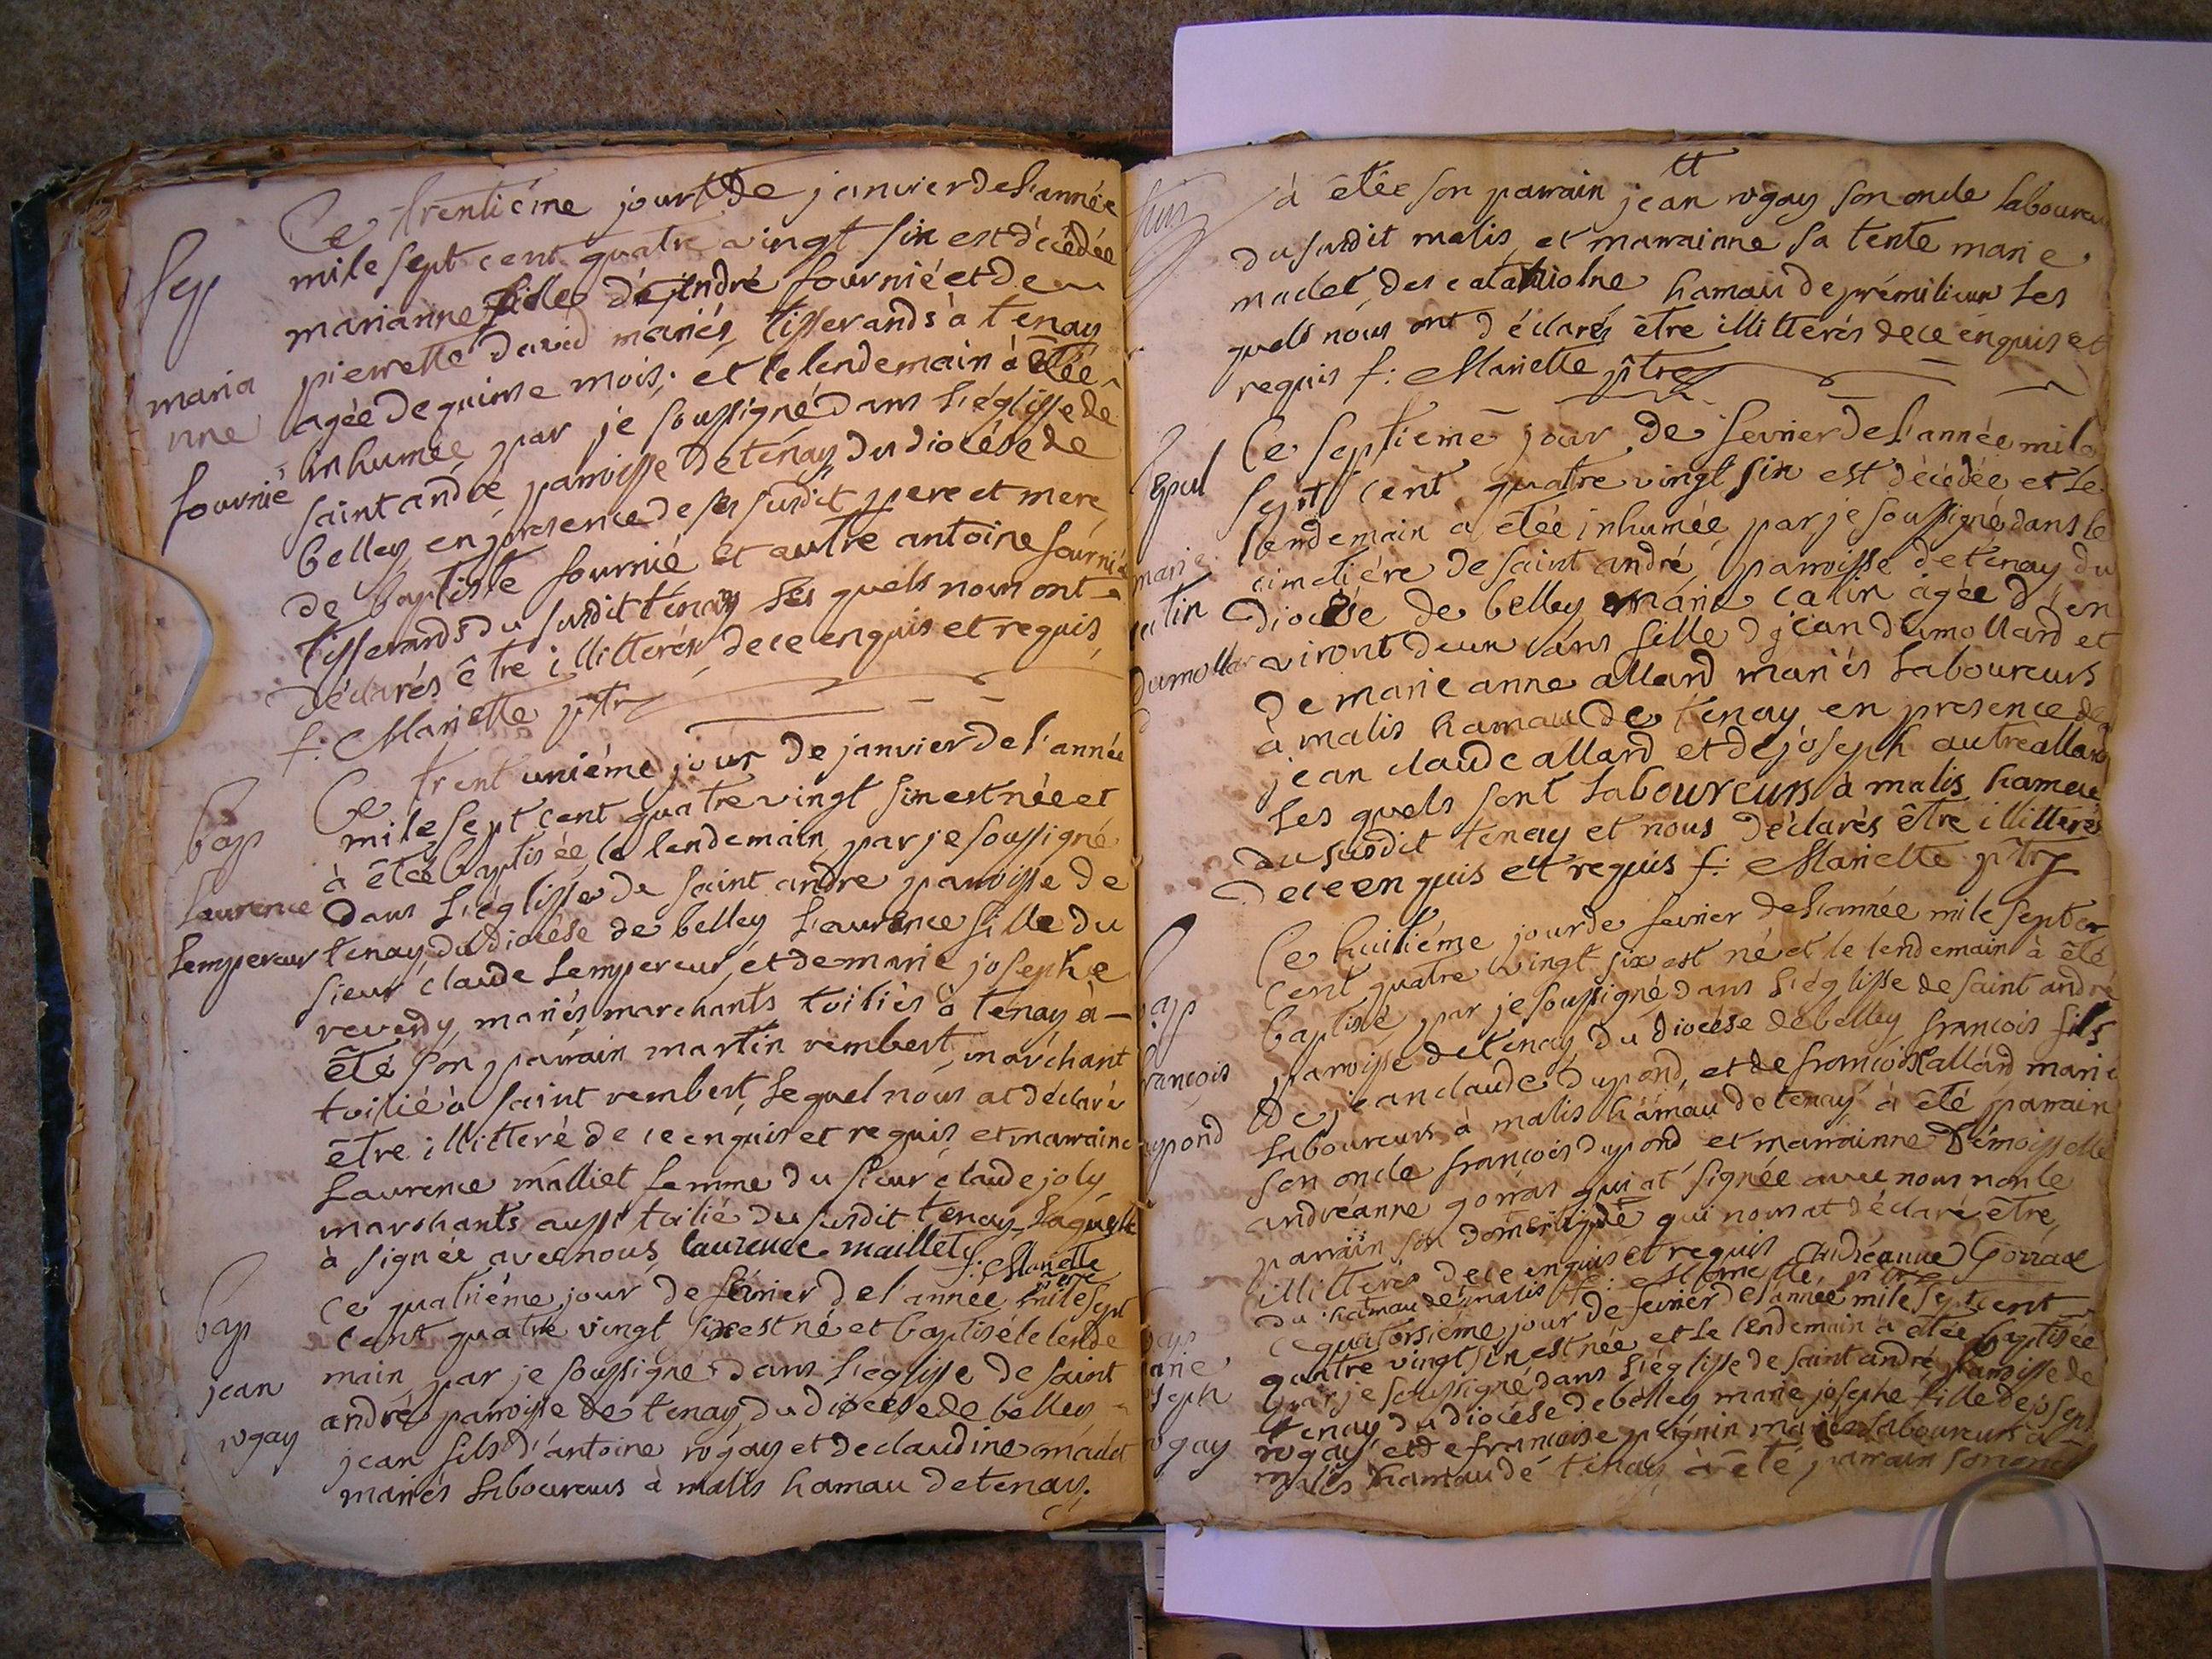 Sep
maria
nne
fournié
Ce trentiéme jour de janvier de l'année
mile sept cent quatre vingt six est décédée
marianne fille d'andré fournié et de
pierrette david mariés tisserands à tenay
agée de quinse mois, et le lendemain à étée
inhumée par je soussigné dans l'églisse de
saint andré parroisse de tenay du diocése de
belley en presence de ses susdit pere et mere
de baptiste fournié et autre antoine fournié
tisserands du susdit tenay les quels nous ont
déclarés être illitterés de ce enquis et requis
f: Mariette ptre
bap
Laurence
Lempereur
Ce trent uniéme jour de janvier de l'année
mile sept cent quatre vingt six est née et
à étée baptisée le lendemain par je soussigné
dans l'églisse de saint andre parroisse de
tenay du diocése de belley Laurence fille du
sieur claude Lempereur, et de marie josephe
reverdy mariés marchants toiliés à tenay à
été son parrain martin rembert marchant
toilié à saint rembert, lequel nous at déclaré
être illitteré de ce enquis et requis et marraine
Laurence malliet femme du sieur claude joly
marchants aussi toilié du susdit tenay laquelle
à signée avec nous laurence maillet f: Mariette ptre
bap
jean
rogay
Ce quatriéme jour de février de l'année mile sept
cent quatre vingt six est né et baptisé le lende
main par je soussigné dans l'églisse de saint
andré parroisse de tenay du diocese de belley
jean fils d'antoine rogay et de claudine madet
mariés laboureurs à malis hamau de tenay.
à étée son parrain jean rogay son oncle laboureur
du susdit malis et marrainne sa tente marie
madet des hamau de prémilieux les
quels nous ont déclarés être illitterés de ce enquis et
requis f: Mariette ptre
Sepul
marie
catin
dumollar
d
Ce septiéme jour de fevrier de l'année mile
sept cent quatre vingt six est décédée et le
lendemain à étée inhumée par je soussigné dans le
cimetiére de saint andré parroisse de tenay du
diocése de belley marie catin agée d'en
viront deux ans fille d jean dumollard et
de marie anne allard mariés laboureurs
à malis hamau de tenay en presence de
jean claude allard et de joseph autre allard
les quels sont laboureurs à malis hamau
du susdit tenay et nous déclarés être illitterés
de ce en quis et requis f: Mariette ptre
bap
francois
dupond
Ce huitiéme jour de fevrier de l'année mile sept
cent quatre vingt six est né et le lendemain à été
baptisé par je soussigné dans l'églisse de saint andré
parroisse de tenay du diocése de belley francois fils
de jean claude dupond, et de francoise allard mariés
laboureurs à malis hamau de tenay à été parrain
son oncle francois dupond et marrainne démoisselle
andréanne gorras qui at signée avec nous non le
parrain son domestique qui nous at déclaré être
illitterés de ce enquis et requis andréanne Gorrax
du hamau de malis f: Mariette ptre
bap
marie
joseph
rogay
Ce quatorsiéme jour de fevrier de l'année mile sept cent
quatre vingt six est née et le lendemain à étée baptisée
par je soussigné dans l'églisse de saint andré parroisse de
tenay du diocése de belley marie josephe fille de joseph
rogay et de francoise mariés laboureurs à
malis hamau de tenay à été parrain son oncle